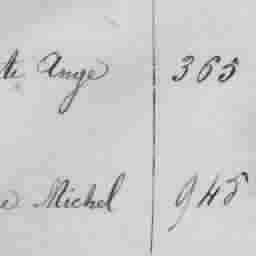 te Ange 365
e Michel 945